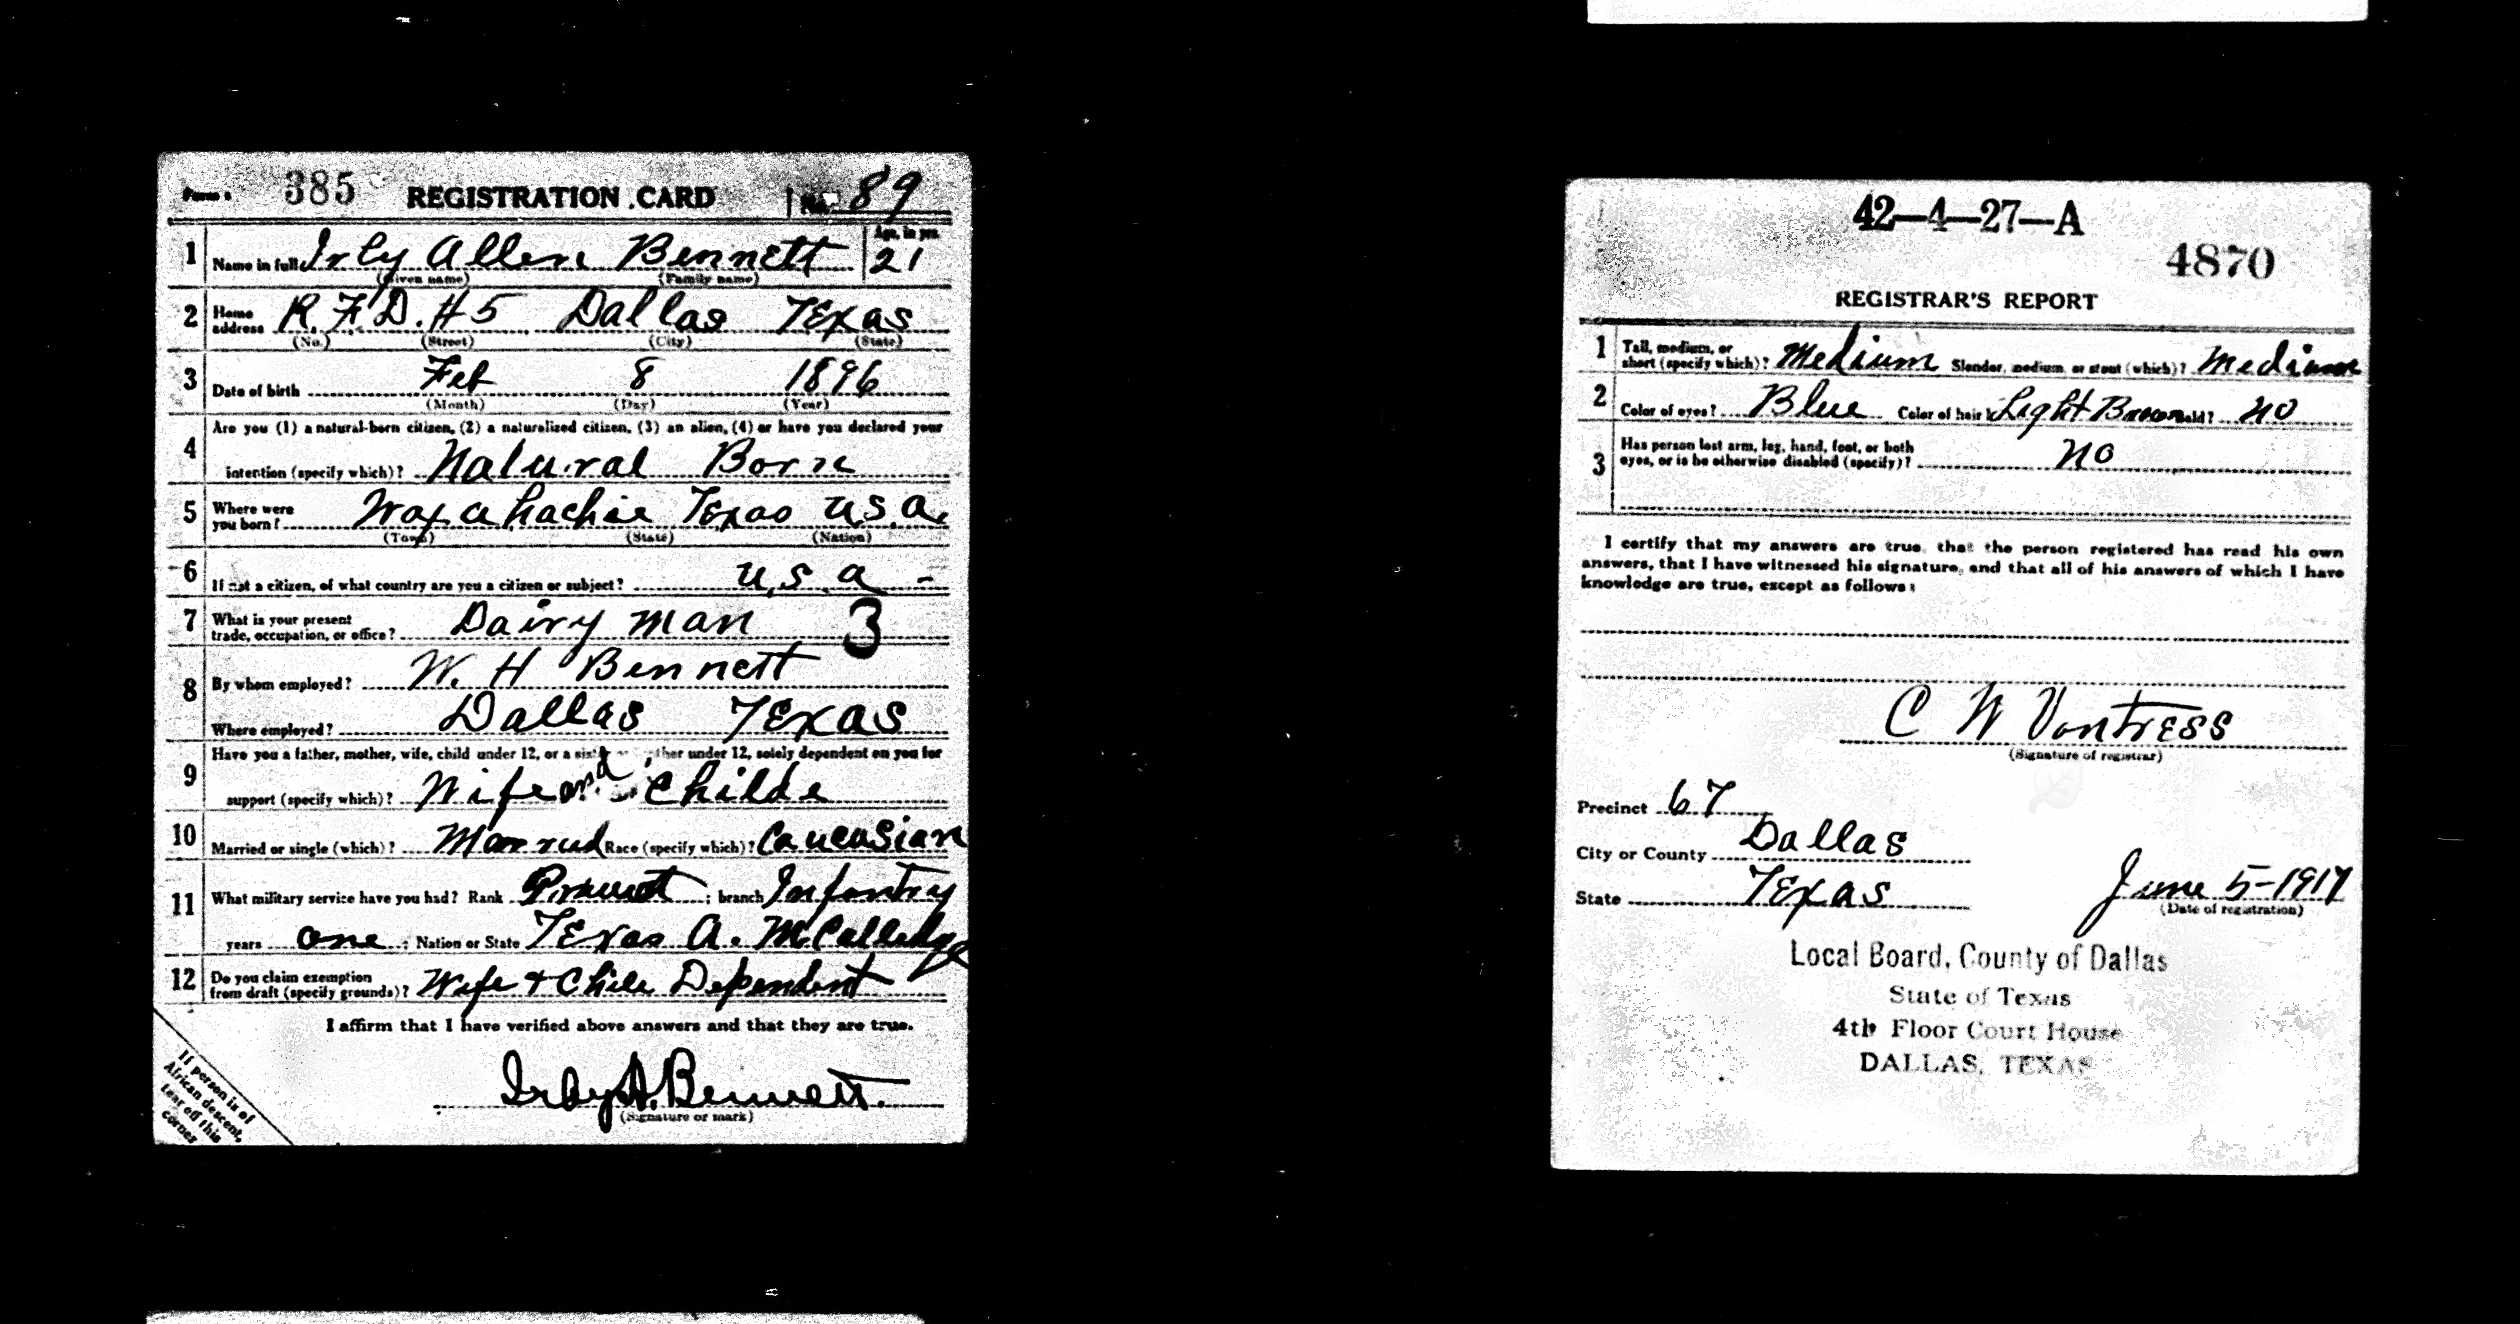 Form 1 385 REGISTRATION CARD No. 89
1 Name in full Irby Allen Bennett Age, in yrs. 21
(Given name) (Family name)
2 Home address R.F.D. #5 Dallas Texas
(No.) (Street) (City) (State)
3 Date of birth Feb 8 1896
(Month) (Day) (Year)
4 Are you (1) a natural-born citizen, (2) a naturalized citizen, (3) an alien, (4) or have you declared your
intention (specify which)? Natural Born
5 Where were you born? Waxahachie Texas U.S.A.
(Town) (State) (Nation)
6 If not a citizen, of what country are you a citizen or subject? U.S.A -
7 What is your present trade, occupation, or office? Dairy man 3
8 By whom employed? W. H Bennett
Where employed? Dallas Texas
9 Have you a father, mother, wife, child under 12, or a sister or brother under 12, solely dependent on you for
support (specify which)? Wife and Childe
10 Married or single (which)? Married Race (specify which)? Caucasian
11 What military service have you had? Rank ; branch Infantry
years one ; Nation or State Texas A. M. Colledge
12 Do you claim exemption from draft (specify grounds)? Wife + Chile Dependent
I affirm that I have verified above answers and that they are true.
Irby A. Bennett.
(Signature or mark)
If person is of
African descent,
tear off this
corner
42—4—27—A
4870
REGISTRAR'S REPORT
1 Tall, medium, or short (specify which)? Medium Slender, medium, or stout (which)? Medium
2 Color of eyes? Blue Color of hair? Light Brown Bald? No
3 Has person lost arm, leg, hand, foot, or both
eyes, or is he otherwise disabled (specify)? No
I certify that my answers are true, that the person registered has read his own
answers, that I have witnessed his signature, and that all of his answers of which I have
knowledge are true, except as follows:
C W Vontress
(Signature of registrar)
Precinct 67
City or County Dallas
State Texas June 5-1917
(Date of registration)
Local Board, County of Dallas
State of Texas
4th Floor Court House
DALLAS, TEXAS